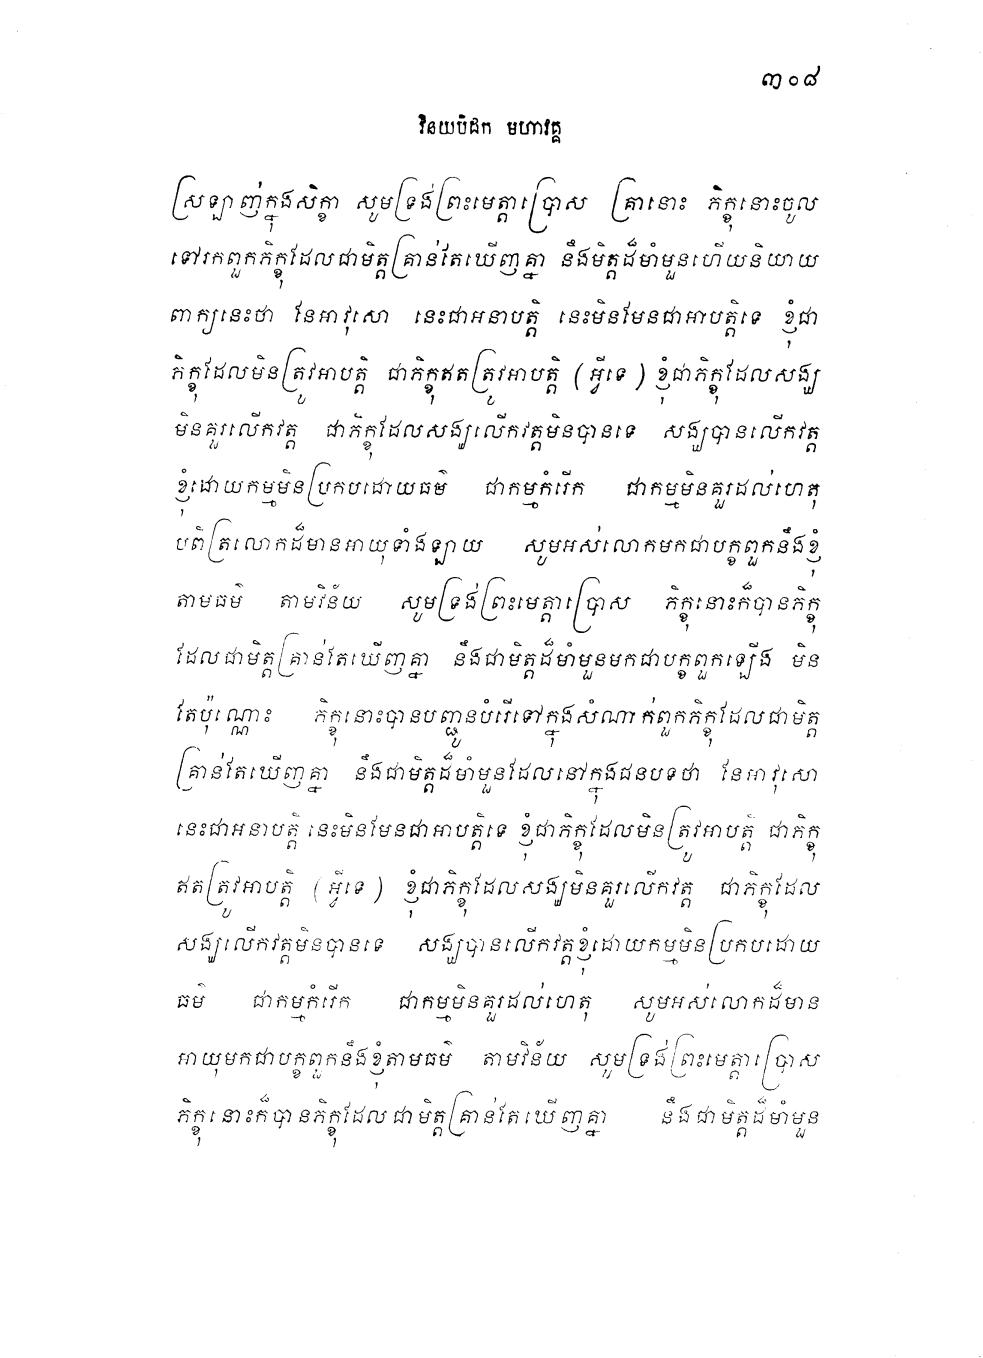 ៣០៨
វិនយបិដក មហាវគ្គ
ស្រឡាញ់ក្នុងសិក្ខា សូមទ្រង់ព្រះមេត្តាប្រោស គ្រានោះ ភិក្ខុនោះចូល
ទៅរកពួកភិក្ខុដែលជាមិត្តគ្រាន់តែឃើញគ្នា នឹងមិត្តដ៏មាំមួនហើយនិយាយ
ពាក្យនេះថា នែអាវុសោ នេះជាអនាបត្តិ នេះមិនមែនជាអាបត្តិទេ ខ្ញុំជា
ភិក្ខុដែលមិនត្រូវអាបត្តិ ជាភិក្ខុឥតត្រូវអាបត្តិ (អ្វីទេ) ខ្ញុំជាភិក្ខុដែលសង្ឃ
មិនគួរលើកវត្ត ជាភិក្ខុដែលសង្ឃលើកវត្តមិនបានទេ សង្ឃបានលើកវត្ត
ខ្ញុំដោយកម្មមិនប្រកបដោយធម៌ ជាកម្មកំរើក ជាកម្មមិនគួរដល់ហេតុ
បពិត្រលោកដ៏មានអាយុទាំងឡាយ សូមអស់លោកមកជាបក្ខពួកនឹងខ្ញុំ
តាមធម៌ តាមវិន័យ សូមទ្រង់ព្រះមេត្តាប្រោស ភិក្ខុនោះក៏បានភិក្ខុ
ដែលជាមិត្តគ្រាន់តែឃើញគ្នា នឹងជាមិត្តដ៏មាំមួនមកជាបក្ខពួកឡើង មិន
តែប៉ុណ្ណោះ ភិក្ខុនោះបានបញ្ជូនបំរើទៅក្នុងសំណាក់ពួកភិក្ខុដែលជាមិត្ត
គ្រាន់តែឃើញគ្នា នឹងជាមិត្តដ៏មាំមួនដែលនៅក្នុងជនបទថា នែអាវុសោ
នេះជាអនាបត្តិ នេះមិនមែនជាអាបត្តិទេ ខ្ញុំជាភិក្ខុដែលមិនត្រូវអាបត្តិ ជាភិក្ខុ
ឥតត្រូវអាបត្តិ (អ្វីទេ) ខ្ញុំជាភិក្ខុដែលសង្ឃមិនគួរលើកវត្ត ជាភិក្ខុដែល
សង្ឃលើកវត្តមិនបានទេ សង្ឃបានលើកវត្តខ្ញុំដោយកម្មមិនប្រកបដោយ
ធម៌ ជាកម្មកំរើក ជាកម្មមិនគួរដល់ហេតុ សូមអស់លោកដ៏មាន
អាយុមកជាបក្ខពួកនឹងខ្ញុំតាមធម៌ តាមវិន័យ សូមទ្រង់ព្រះមេត្តាប្រោស
ភិក្ខុនោះក៏បានភិក្ខុដែលជាមិត្តគ្រាន់តែឃើញគ្នា នឹងជាមិត្តដ៏មាំមួន